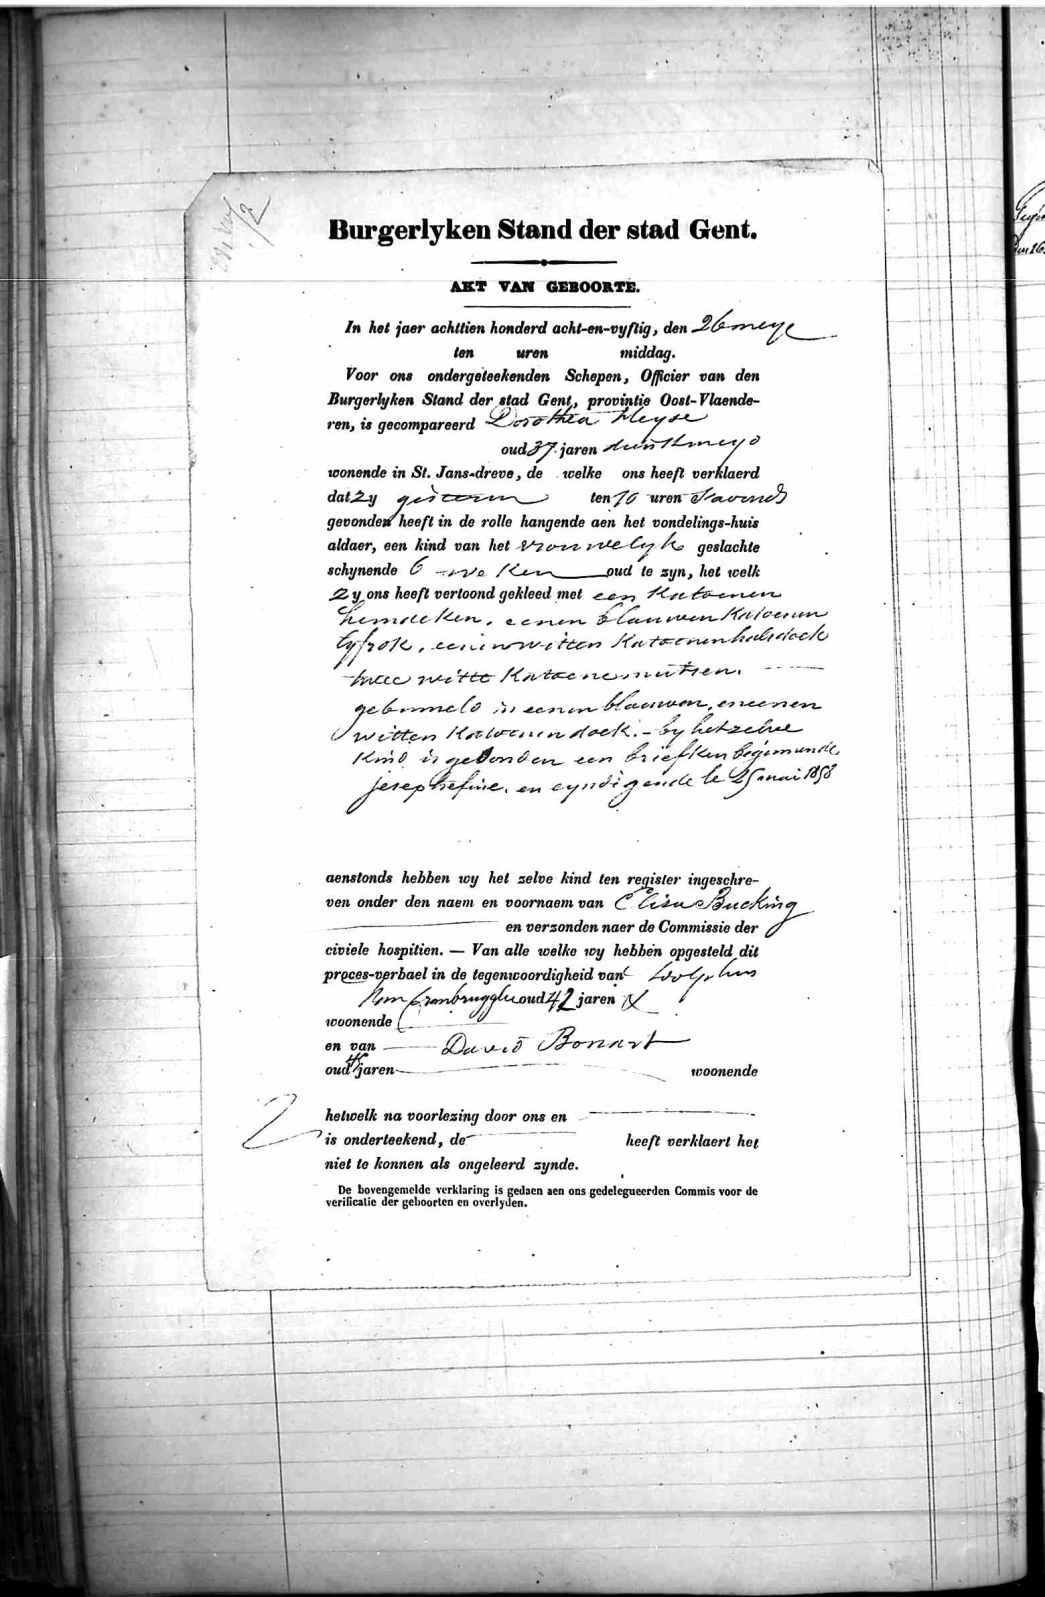 Burgerlyken Stand der stad Gent.
AKT VAN GEBOORTE.
In het jaer achttien honderd acht-en-vyftig, den 26 meye
ten uren middag.
Voor ons ondergeteekenden Schepen, Officier van den
Burgerlyken Stand der stad Gent, provintie Oost-Vlaende-
ren, is gecompareerd Dorothea Heyse
oud 37 jaren dienstmeyd
wonende in St. Jans-dreve, de welke ons heeft verklaerd
dat zy gisteren ten 10 uren s'avonds
gevonden heeft in de rolle hangende aen het vondelings-huis
aldaer, een kind van het vrouwelyk geslachte
schynende 6 weken oud te zyn, het welk
zy ons heeft vertoond gekleed met een katoenen
hemdeken, eenen blauwen katoenen
lyfrok, eenen witten katoenen halsdoek
twee witte katoene mutsen.
gebunseld in eenen blauwen, en eenen
witten katoenen doek. - by het zelve
kind is gevonden een briefken beginnende
josephine, en eyndigende le 25 mai 1858
aenstonds hebben wy het zelve kind ten register ingeschre-
ven onder den naem en voornaem van Elisa Bucking
en verzonden naer de Commissie der
civiele hospitien. — Van alle welke wy hebben opgesteld dit
proces-verbael in de tegenwoordigheid van
oud 42 jaren
woonende
en van David Bonart
oud jaren woonende
hetwelk na voorlezing door ons en
is onderteekend, de heeft verklaert het
niet te konnen als ongeleerd zynde.
De bovengemelde verklaring is gedaen aen ons gedelegueerden Commis voor de
verificatie der geboorten en overlyden.